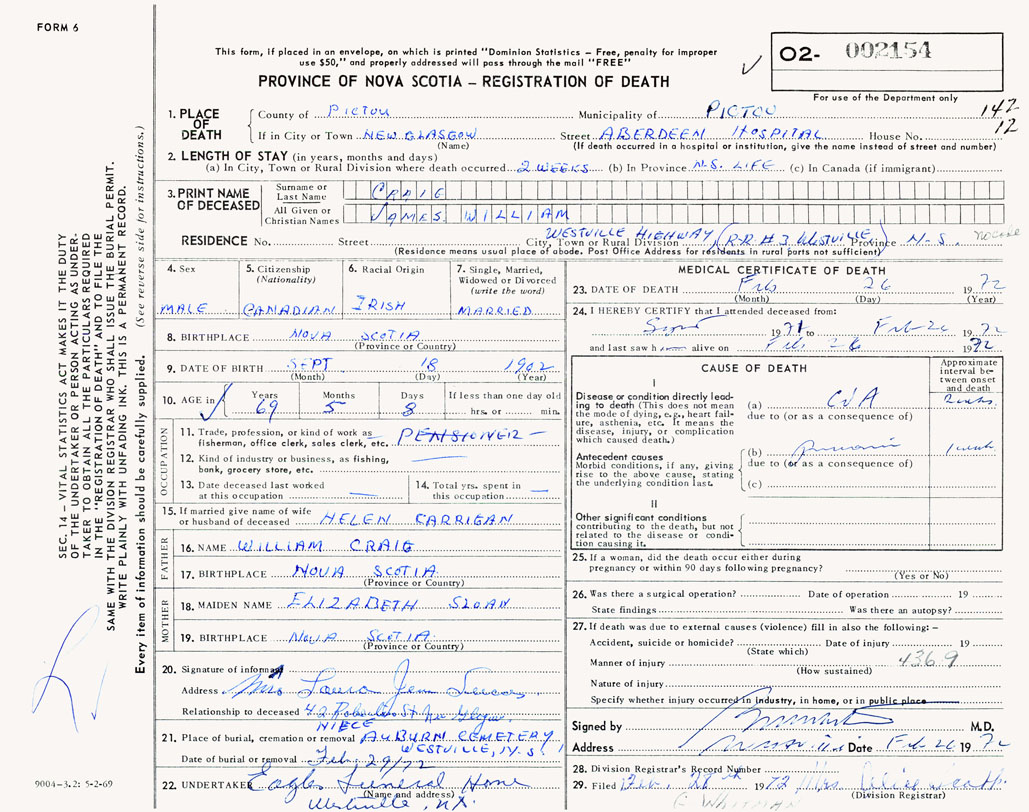 FORM 6
This form, if placed in an envelope, on which is printed "Dominion Statistics – Free, penalty for improper
use $50," and properly addressed will pass through the mail "FREE"
PROVINCE OF NOVA SCOTIA – REGISTRATION OF DEATH
O2- 002154
For use of the Department only
142
12
1. PLACE OF DEATH
County of PICTOU Municipality of PICTOU
If in City or Town NEW GLASGOW Street ABERDEEN HOSPITAL House No.
(Name) (If death occurred in a hospital or institution, give the name instead of street and number)
2. LENGTH OF STAY (in years, months and days)
(a) In City, Town or Rural Division where death occurred 2 WEEKS (b) In Province N.S. LIFE (c) In Canada (if immigrant)
3. PRINT NAME OF DECEASED
Surname or Last Name CRAIG
All Given or Christian Names JAMES WILLIAM
RESIDENCE No. Street City, Town or Rural Division WESTVILLE HIGHWAY (R.R #3 WESTVILLE) Province N.S.
(Residence means usual place of abode. Post Office Address for residents in rural parts not sufficient)
4. Sex
MALE
5. Citizenship
(Nationality)
CANADIAN
6. Racial Origin
IRISH
7. Single, Married,
Widowed or Divorced
(write the word)
MARRIED
8. BIRTHPLACE NOVA SCOTIA
(Province or Country)
9. DATE OF BIRTH SEPT 18 1902
(Month) (Day) (Year)
10. AGE in Years Months Days If less than one day old
69 5 8 hrs. or min.
OCCUPATION
11. Trade, profession, or kind of work as
fisherman, office clerk, sales clerk, etc. – PENSIONER –
12. Kind of industry or business, as fishing,
bank, grocery store, etc.
13. Date deceased last worked
at this occupation
14. Total yrs. spent in
this occupation
15. If married give name of wife
or husband of deceased HELEN CARRIGAN
FATHER
16. NAME WILLIAM CRAIG
17. BIRTHPLACE NOVA SCOTIA
(Province or Country)
MOTHER
18. MAIDEN NAME ELIZABETH SLOAN
19. BIRTHPLACE NOVA SCOTIA
(Province or Country)
20. Signature of informant
Address Mrs Laura Jean
Relationship to deceased 42 St New Glasgow.
NIECE
21. Place of burial, cremation or removal AUBURN CEMETERY
WESTVILLE, N.S.
Date of burial or removal Feb, 29/72
22. UNDERTAKER Eagles Funeral Home
(Name and address)
Westville, N.S.
MEDICAL CERTIFICATE OF DEATH
23. DATE OF DEATH Feb 26 1972
(Month) (Day) (Year)
24. I HEREBY CERTIFY that I attended deceased from:
Sept 1971 to Feb 26 1972
and last saw h alive on Feb 26 1972
CAUSE OF DEATH
Approximate
interval be-
tween onset
and death
I
Disease or condition directly lead-
ing to death (This does not mean
the mode of dying, e.g., heart fail-
ure, asthenia, etc. It means the
disease, injury, or complication
which caused death.)
(a) CVA 2 wks.
due to (or as a consequence of)
Antecedent causes
Morbid conditions, if any, giving
rise to the above cause, stating
the underlying condition last.
(b) pneumonia 1 week
due to (or as a consequence of)
(c)
II
Other significant conditions
contributing to the death, but not
related to the disease or condi-
tion causing it.
25. If a woman, did the death occur either during
pregnancy or within 90 days following pregnancy?
(Yes or No)
26. Was there a surgical operation? Date of operation 19
State findings Was there an autopsy?
27. If death was due to external causes (violence) fill in also the following: –
Accident, suicide or homicide? Date of injury 19
(State which)
Manner of injury 436.9
(How sustained)
Nature of injury
Specify whether injury occurred in industry, in home, or in public place
Signed by M.D.
Address Date Feb 26 1972
28. Division Registrar's Record Number
29. Filed Feb. 28th 1972 Mrs
(Division Registrar)
SEC. 14 – VITAL STATISTICS ACT MAKES IT THE DUTY
OF THE UNDERTAKER OR PERSON ACTING AS UNDER-
TAKER TO OBTAIN ALL THE PARTICULARS REQUIRED
IN THE "REGISTRATION OF DEATH" AND TO FILE THE
SAME WITH THE DIVISION REGISTRAR WHO SHALL ISSUE THE BURIAL PERMIT.
WRITE PLAINLY WITH UNFADING INK. THIS IS A PERMANENT RECORD.
Every item of information should be carefully supplied. (See reverse side for instructions.)
9004-3.2: 5-2-69